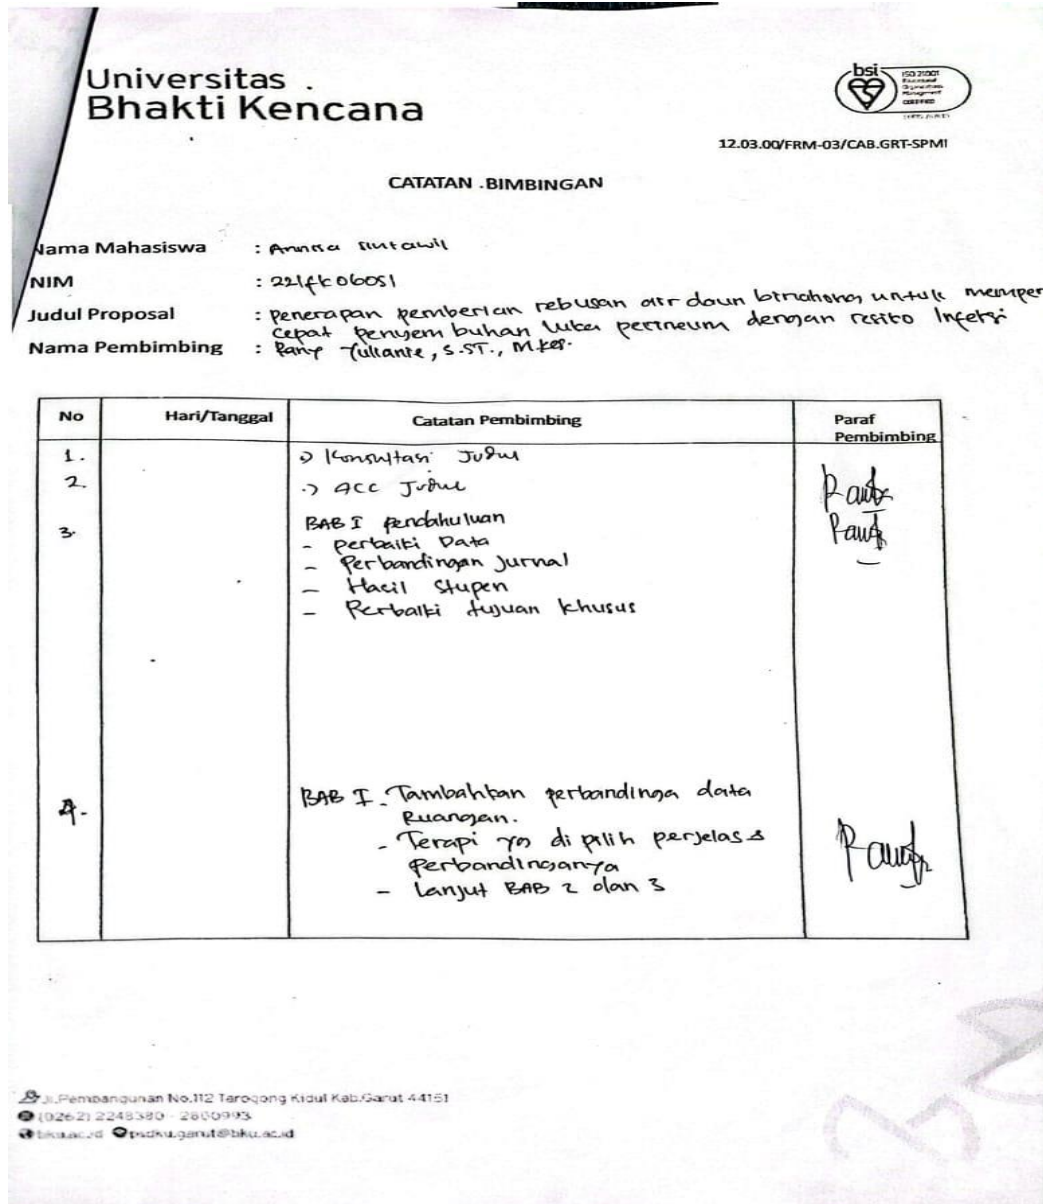 Universitas
Bhakti Kencana
bsi
ISO 21001
CERTIFIED
12.03.00/FRM-03/CAB.GRT-SPMI
CATATAN BIMBINGAN
Nama Mahasiswa : Annisa
NIM : 221FK06051
Judul Proposal : Penerapan pemberian rebusan air daun binahong untuk memper
cepat penyembuhan luka perineum dengan resiko Infeksi
Nama Pembimbing : Yulianti, S.ST., M.Kes.
No Hari/Tanggal Catatan Pembimbing Paraf
Pembimbing
1. Konsultasi Judul
2. ACC Judul
3. BAB I pendahuluan
- Perbaiki Data
- Perbandingan Jurnal
- Hasil Stupen
- Perbaiki tujuan khusus
4. BAB I - Tambahkan perbandinga data
Ruangan.
- Terapi yg di pilih perjelas
perbandinganya
- Lanjut BAB 2 dan 3
Jl.Pembangunan No.112 Tarogong Kidul Kab.Garut 44151
(0262) 2248380 - 2800993
bku.ac.id psdku.garut@bku.ac.id